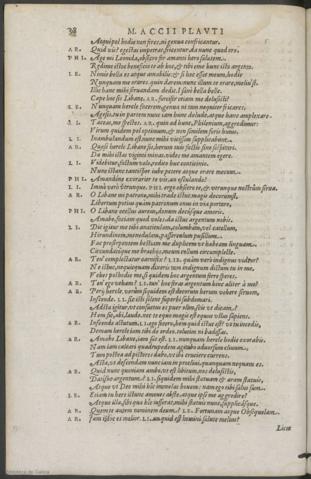 38 M. ACCII PLAVTI
Atqui pol hodie non feres, ni genua confricantur.
AR. Quid vis? egestas imperat, fricentur. da nunc quod oro.
PHI. Age mi Leonida, obsecro fer amanti hero salutem.
Redime istoc beneficio te ab hoc, & tibi eme hunc isto argento.
LE. Nimis bella es atque amabilis: & si hoc esset meum, hodie
Nunquam me orares. quin darem, nunc illum te orare, meliu'st.
Illic hanc mihi servandam dedit. I sanè bella bellè.
Cape hoc sis Libane.
LE. Nunquam
Age sis, tuin partem nunc iam hunc delude, atque hanc amplexare.
LI. Taceas, me spectes.
Virum quidem pol optimum, & non similem furis huius.
LI. Inambulandum est nunc mihi vicissim supplicabunt.
AR. Quaeso hercle Libane sis, herum tuis factis sine sospitari.
Da mihi istas viginti minas. vides me amantem egere.
LI. Videbitur, factum volo, redito huc conticinio.
Nunc istanc tantisper iube petere atque orare mecum.
PHI. Amandóne exorarier te vis, an osculando?
LI. Immò verò utrunque. PHI. ergo obsecro te, & utrunque nostrûm serva.
AR. O Libane mi patrone, mihi trade istuc. magis decorum'st,
Libertum potius quàm patronum onus in via portare.
PHI. O Libane ocellus aureus, donum decúsque amoris.
Amabo, faciam quod voles, da istuc argentum nobis.
LI. Dic igitur me tibi anaticulam, columbam, vel catellum,
Hirundinem, monedulam, passerculum putillum.
Fac proserpentem bestiam me duplicem ut habeam linguam.
Circundatóque me brachiis, meum collum circumplecte.
AR. Ten' complectatur carnifex? LI. quàm verò indignus videor?
Ne istuc nequicquam dixeris tam indignum dictum in me,
Vehes pol hodie me, si quidem hoc argentum ferre speres.
AR. Ten' ego veham? LI. tun' hoc feras argentum hinc aliter à me?
AR. Perij hercle. verùm si quidem est decorum herum vehere servum,
Inscende. LI. sic isti solent superbi subdomari.
Adsta igitur, ut consuetus es puer olim, scin' ut dicam?
Hem sic, abi, laudo. nec te equo magis est equus ullus sapiens.
AR. Inscende actutum. LI. ego fecero, hem quid istuc est? ut tu incedis,
Demam hercle iam tibi de ordeo, tolutim ni badissas.
AR. Amabo Libane, iam sat est. LI. nunquam hercle hodie exorabis.
Nam iam calcari quadrupedem agitabo adversum clivum.
Tum postea ad pistores dabo, ut ibi cruciere currens.
Asta, ut descendam nunc iam in proclivi, quanquam nequam es.
AR. Quid nunc quoniam ambo, ut est libitum, nos delusistis,
Datísne argentum? LI. siquidem mihi statuam & aram statuis,
Atque ut Deo mihi hîc immolas bovem: nam ego tibi salus sum.
LE. Etiam tu here istunc amoves abs te, atque ipse me aggredire?
Atque illa, sibi quae hîc iusserat, mihi statuis. nunc, supplicásque.
AR. Quem te autem nominem deum? LE. Fortunam atque Obsequelam.
AR. Iam istoc es melior. LI. an quid est homini salute melius?
Licet